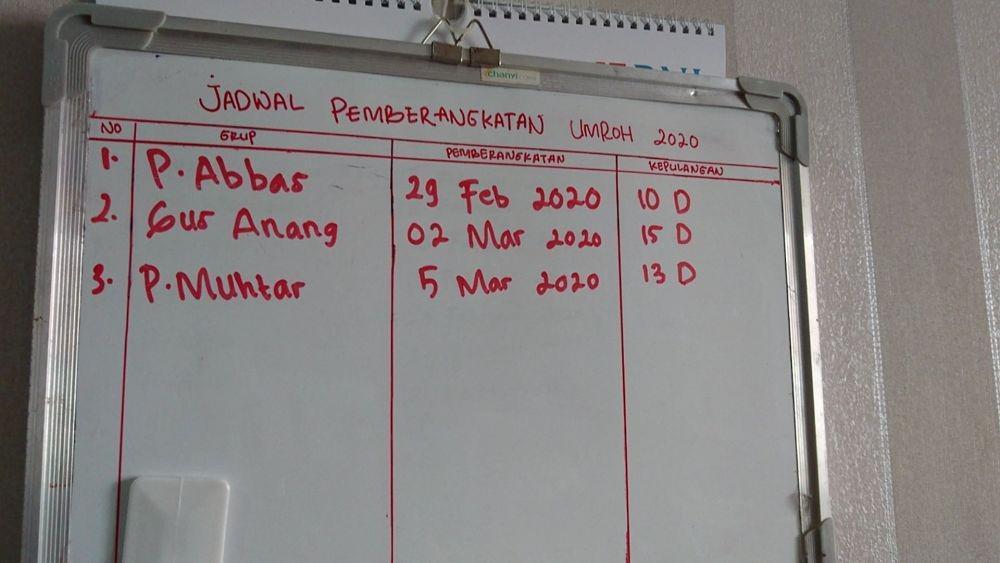 chanyi
JADWAL PEMBERANGKATAN UMROH 2020
NO GRUP PEMBERANGKATAN KEPULANGAN
1. P. Abbas 29 Feb 2020 10 D
2. Gus Anang 02 Mar 2020 15 D
3. P. Muhtar 5 Mar 2020 13 D